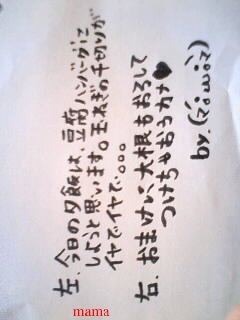 左.今日の夕飯は、豆腐ハンバーグに
しようと思います。玉ねぎの千切りが
イヤでイヤで。。。
右.おまけに、大根もおろして
つけちゃおうカナ♥
by.
mama